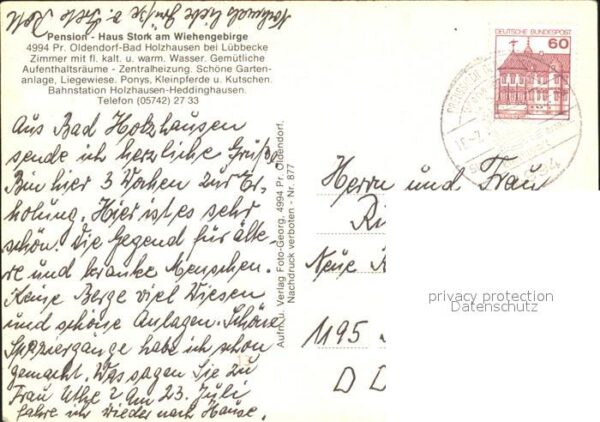 Nochmals liebe Grüße
Pension - Haus Stork am Wiehengebirge
4994 Pr. Oldendorf-Bad Holzhausen bei Lübbecke
Zimmer mit fl. kalt. u. warm. Wasser. Gemütliche
Aufenthaltsräume - Zentralheizung. Schöne Garten-
anlage, Liegewiese. Ponys, Kleinpferde u. Kutschen.
Bahnstation Holzhausen-Heddinghausen.
Telefon (05742) 27 33
Aus Bad Holzhausen
sende ich herzliche Grüße
Bin hier 3 Wochen zur Er-
holung. Hier ist es sehr
schön. Die Gegend für älte-
re und kranke Menschen.
Keine Berge viel Wiesen
und schöne Anlagen. Schöne
Spaziergänge habe ich schon
gemacht. Was sagen Sie zu
Frau Uthe? Am 23. Juli
fahre ich wieder nach Hause.
Aufn. u. Verlag Foto-Georg, 4994 Pr. Oldendorf.
Nachdruck verboten - Nr. 877
DEUTSCHE BUNDESPOST
60
4994
Herrn und Frau
Ri
Neue
1195
D D
privacy protection
Datenschutz